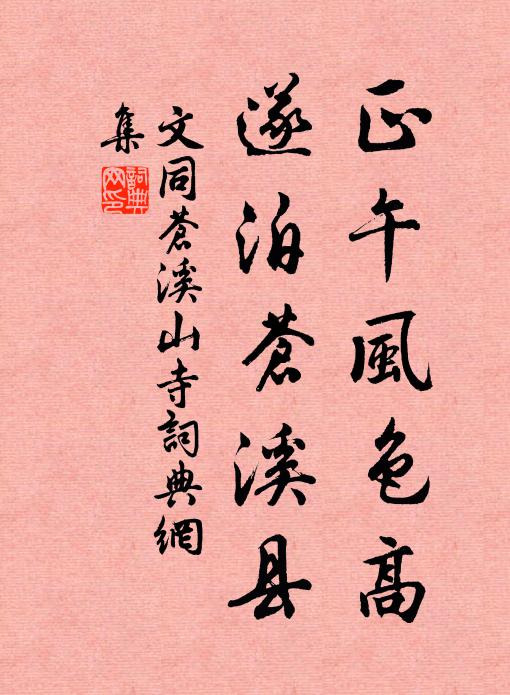 正午風色高
遂泊蒼溪县
文同蒼溪山寺詞典網
集
詞典
网印